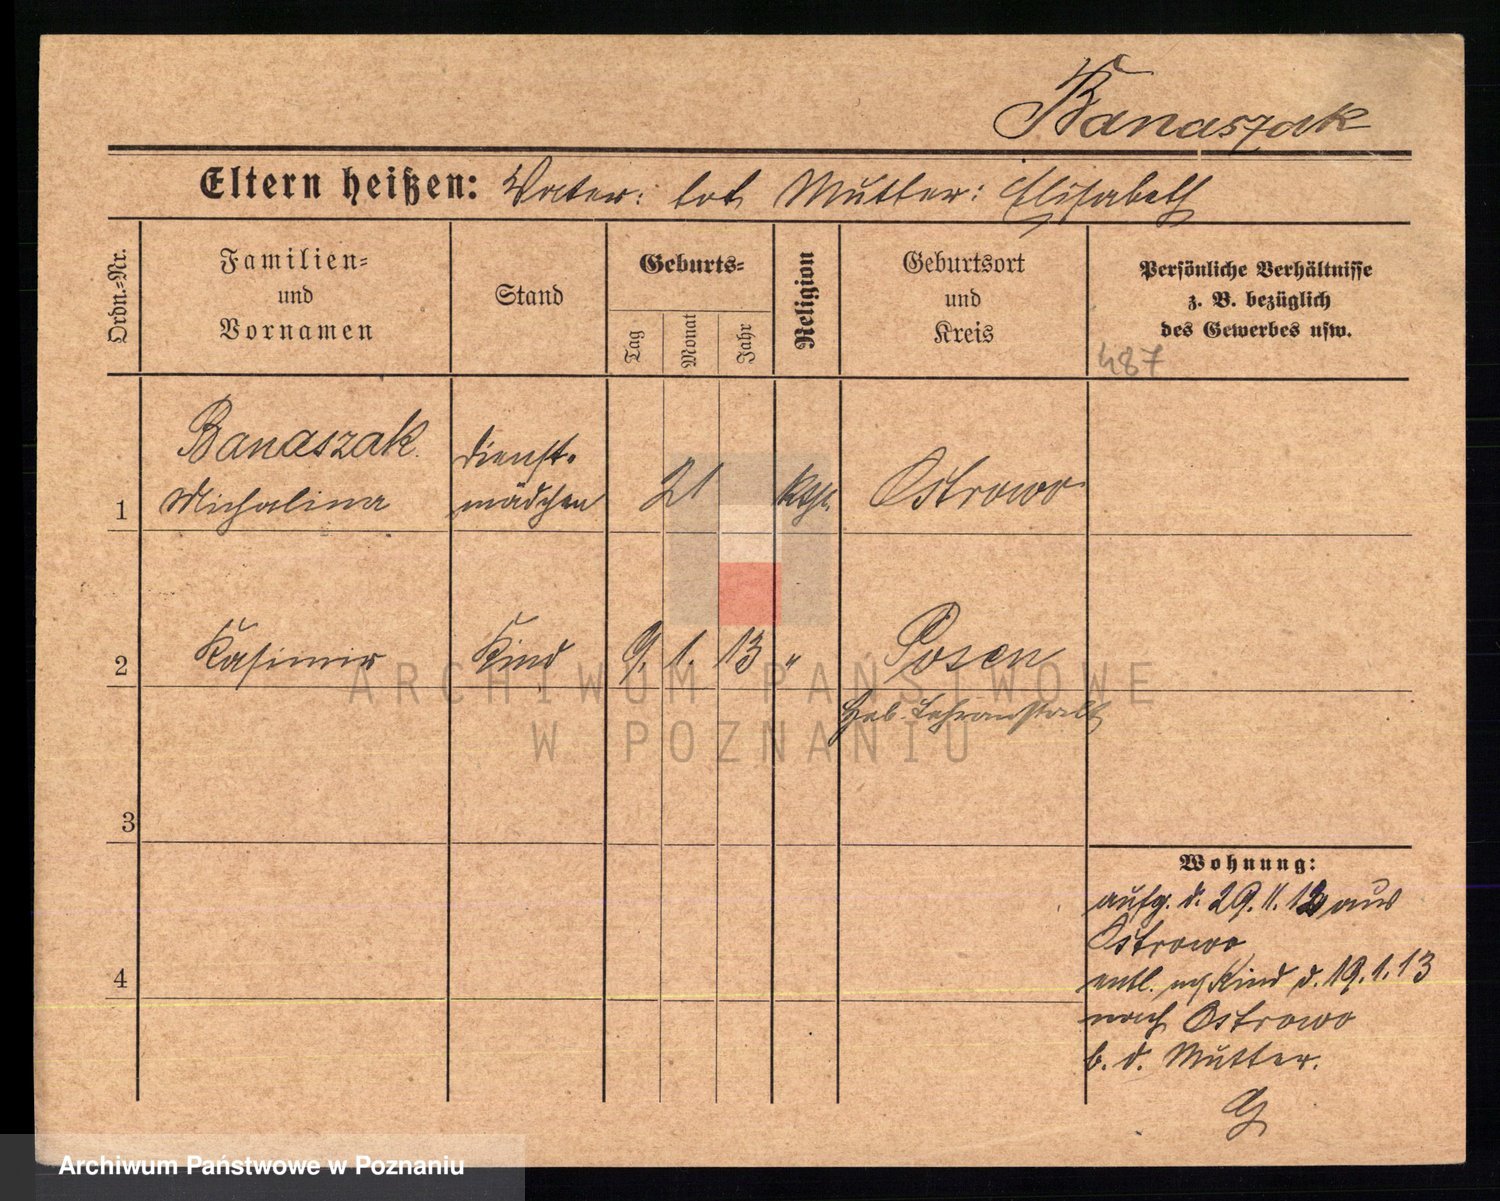 Banaszak
Eltern heißen: Vater: tot Mutter: Elisabeth
Ordn.-Nr.
Familien-
und
Vornamen
Stand
Geburts-
Tag
Monat
Jahr
Religion
Geburtsort
und
Kreis
Persönliche Verhältnisse
z. B. bezüglich
des Gewerbes usw.
487
1
Banaszak
Michalina
Dienst-
mädchen
21
Ostrowo
2
Kasimir
Kind
9. 1. 13
"
Posen
Heb. Lehranstalt
3
4
Wohnung:
aufg. d. 29.11.12 aus
Ostrowo
entl. m/Kind d. 19.1.13
nach Ostrowo
b. d. Mutter.
ARCHIWUM PAŃSTWOWE
W POZNANIU
Archiwum Państwowe w Poznaniu